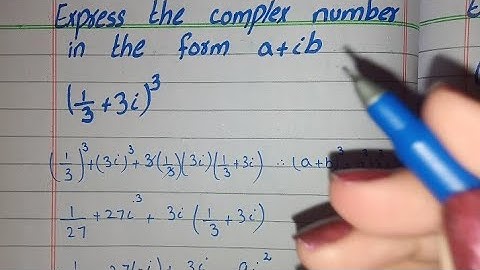 Express the complex number
in the form a+ib
(1/3 + 3i)³
(1/3)³+(3i)³+3(1/3)(3i)(1/3+3i) ∴ (a+b)³
1/27 + 27i³ + 3i (1/3 + 3i)